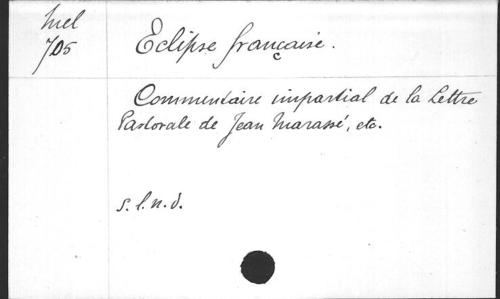 Mel
705
Eclipse française.
Commentaire impartial de la Lettre
Pastorale de Jean Marassé, etc.
s.l.n.d.